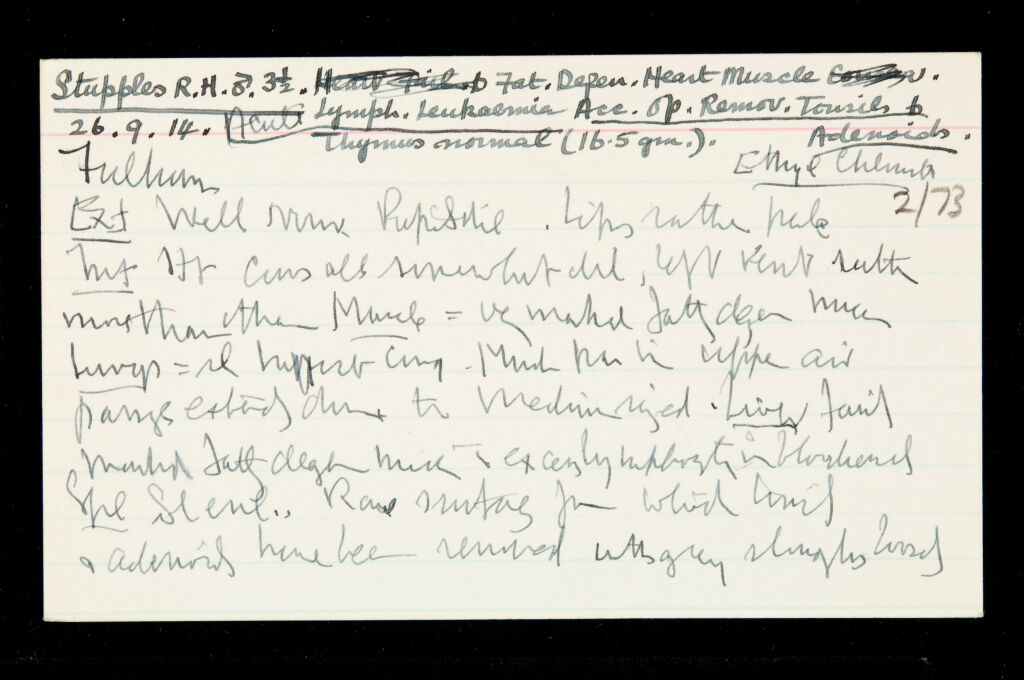 Stupples R.H. ♂. 3½. Fat. Degen. Heart Muscle
26.9.14. Acute Lymph. Leukaemia Acc. Op. Remov. Tonsils &
Thymus normal (16.5 gm.). Adenoids.
Fulham Ethyl Chloride
2/73
Ext Well Pups dil. Lips rather pale
Int Ht Cavs all somewhat dil, left vent rather
more than others Muscle = v marked fatty degen micr
Lungs = sl cong. Much in upper air
passages extends down to medium sized. Liver fairly
marked fatty degen micr excess lymphocytes in blood vessels
Spl sl enl.. Raw surfaces from which tonsils
& adenoids have been removed grey sloughs